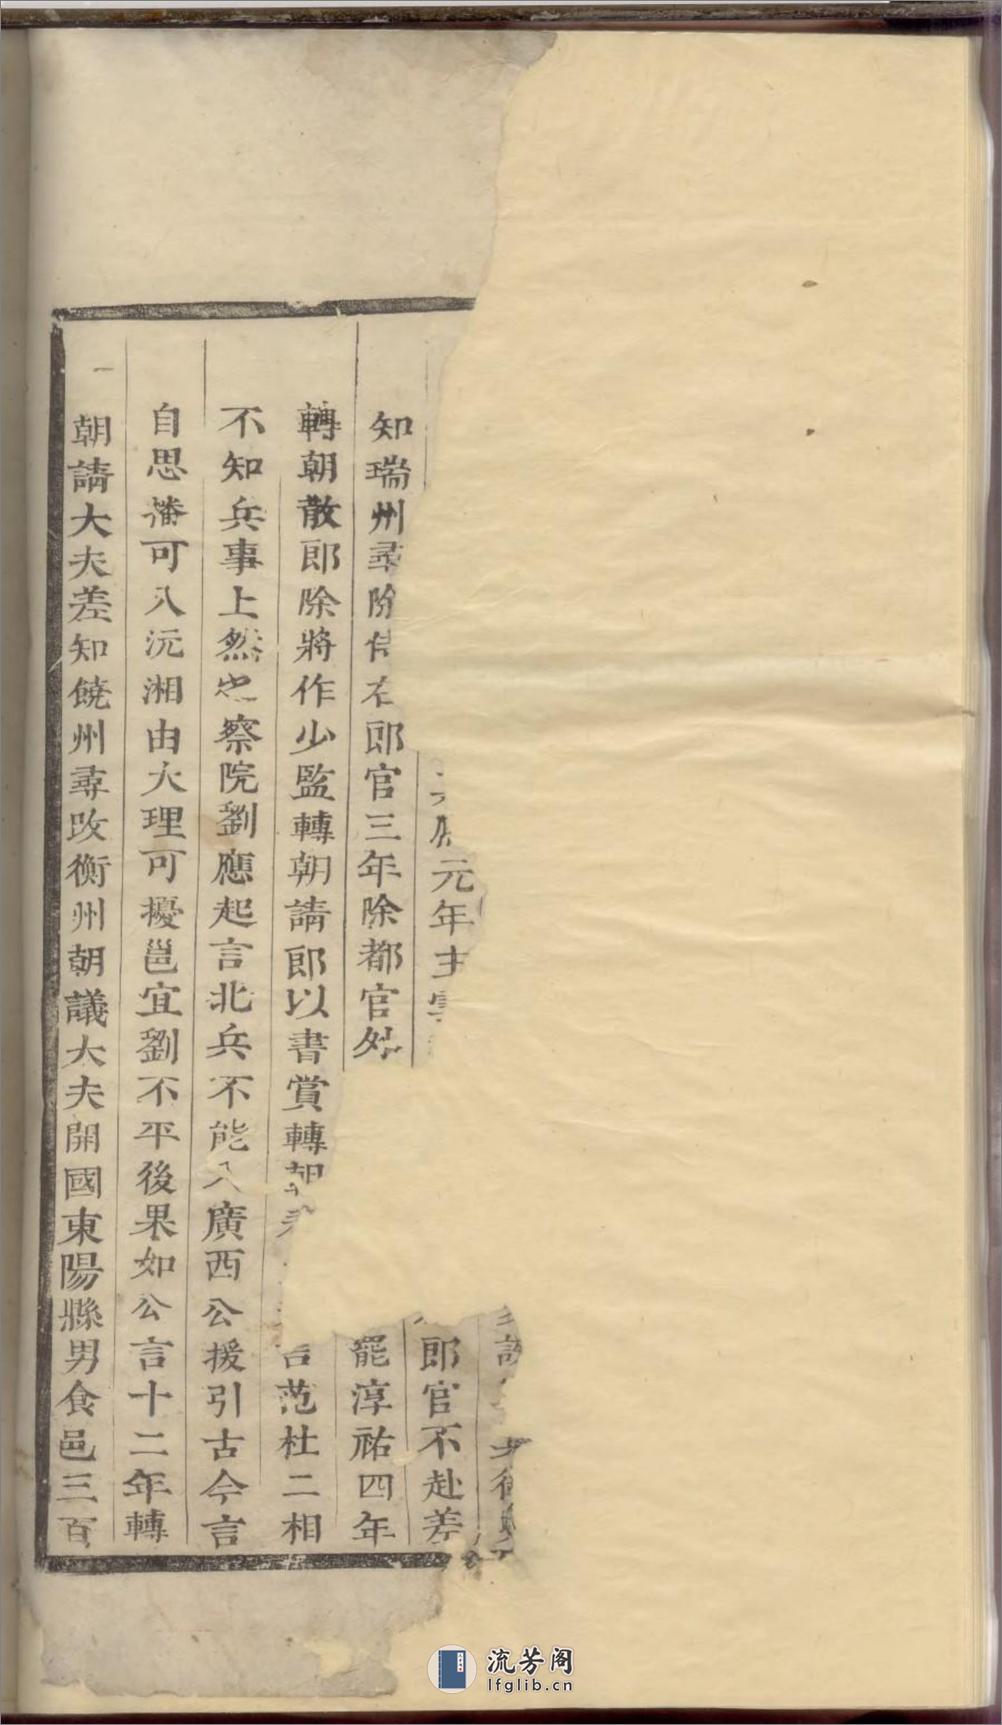 元年主
郎官不赴差
知瑞州尋除
郎官三年除都官
罷淳祐四年
轉朝散郎除將作少監轉朝請郎以書賞轉朝
言范杜二相
不知兵事上然之察院劉應起言北兵不能入廣西公援引古今言
自思播可入沅湘由大理可擾邕宜劉不平後果如公言十二年轉
朝請大夫差知饒州尋改衡州朝議大夫開國東陽縣男食邑三百
流芳阁
lfglib.cn